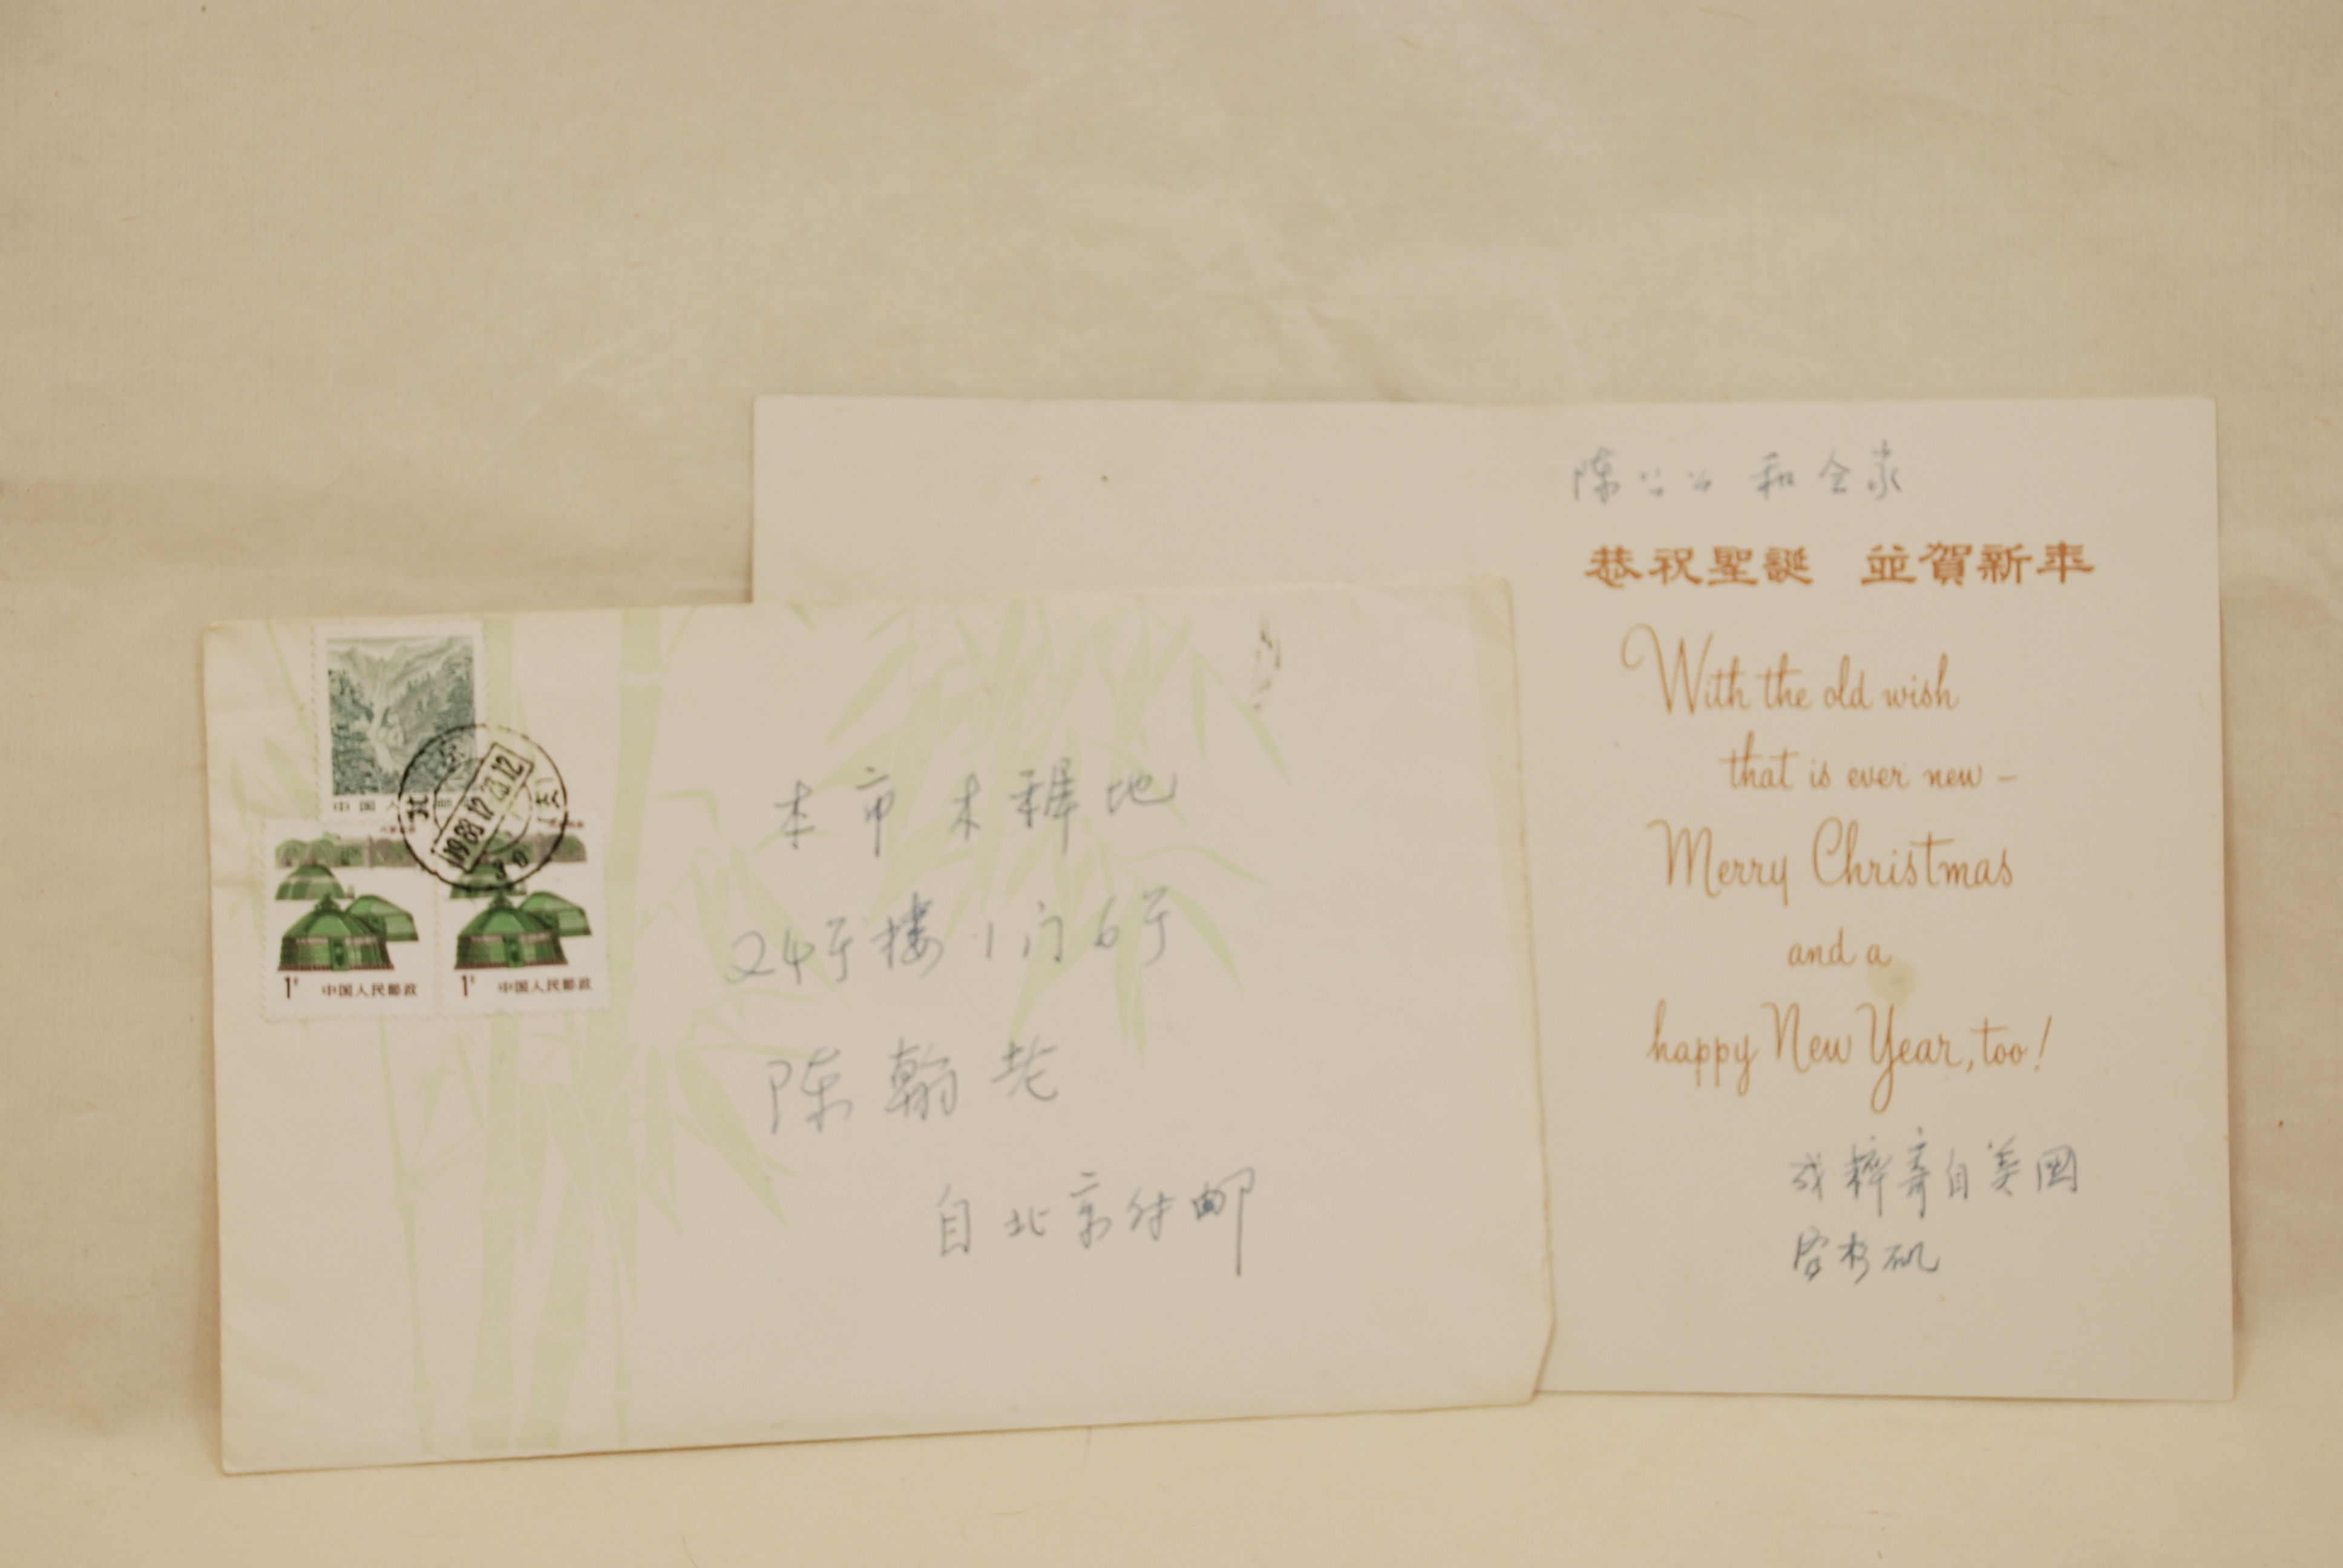 中国人
邮
北京
1988.12.23.12
1分 中国人民邮政
1分 中国人民邮政
本市木樨地
24号楼1门6号
陈翰老
自北京付邮
陈公公和全家
恭祝聖誕 並賀新年
With the old wish
that is ever new –
Merry Christmas
and a
happy New Year, too!
成粹寄自美国